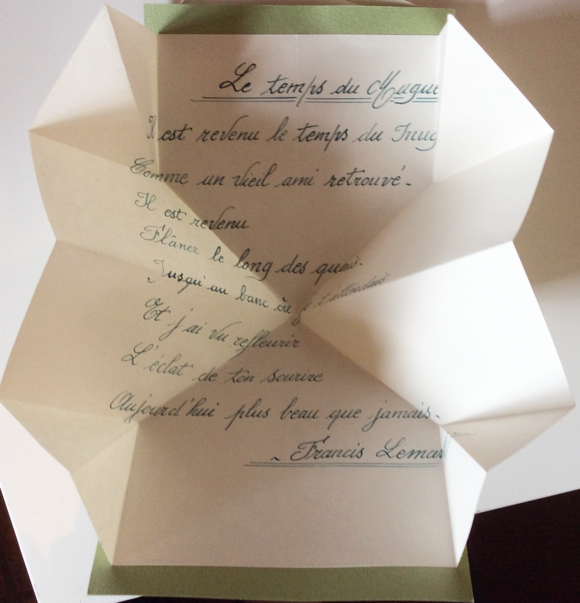 Le temps du Mugue
Il est revenu le temps du mug
Comme un vieil ami retrouvé.
Il est revenu
Flâner le long des quais
Jusqu'au banc où je t'attendais
Et j'ai vu refleurir
L'éclat de ton sourire
Aujourd'hui plus beau que jamais.
~ Francis Lemar